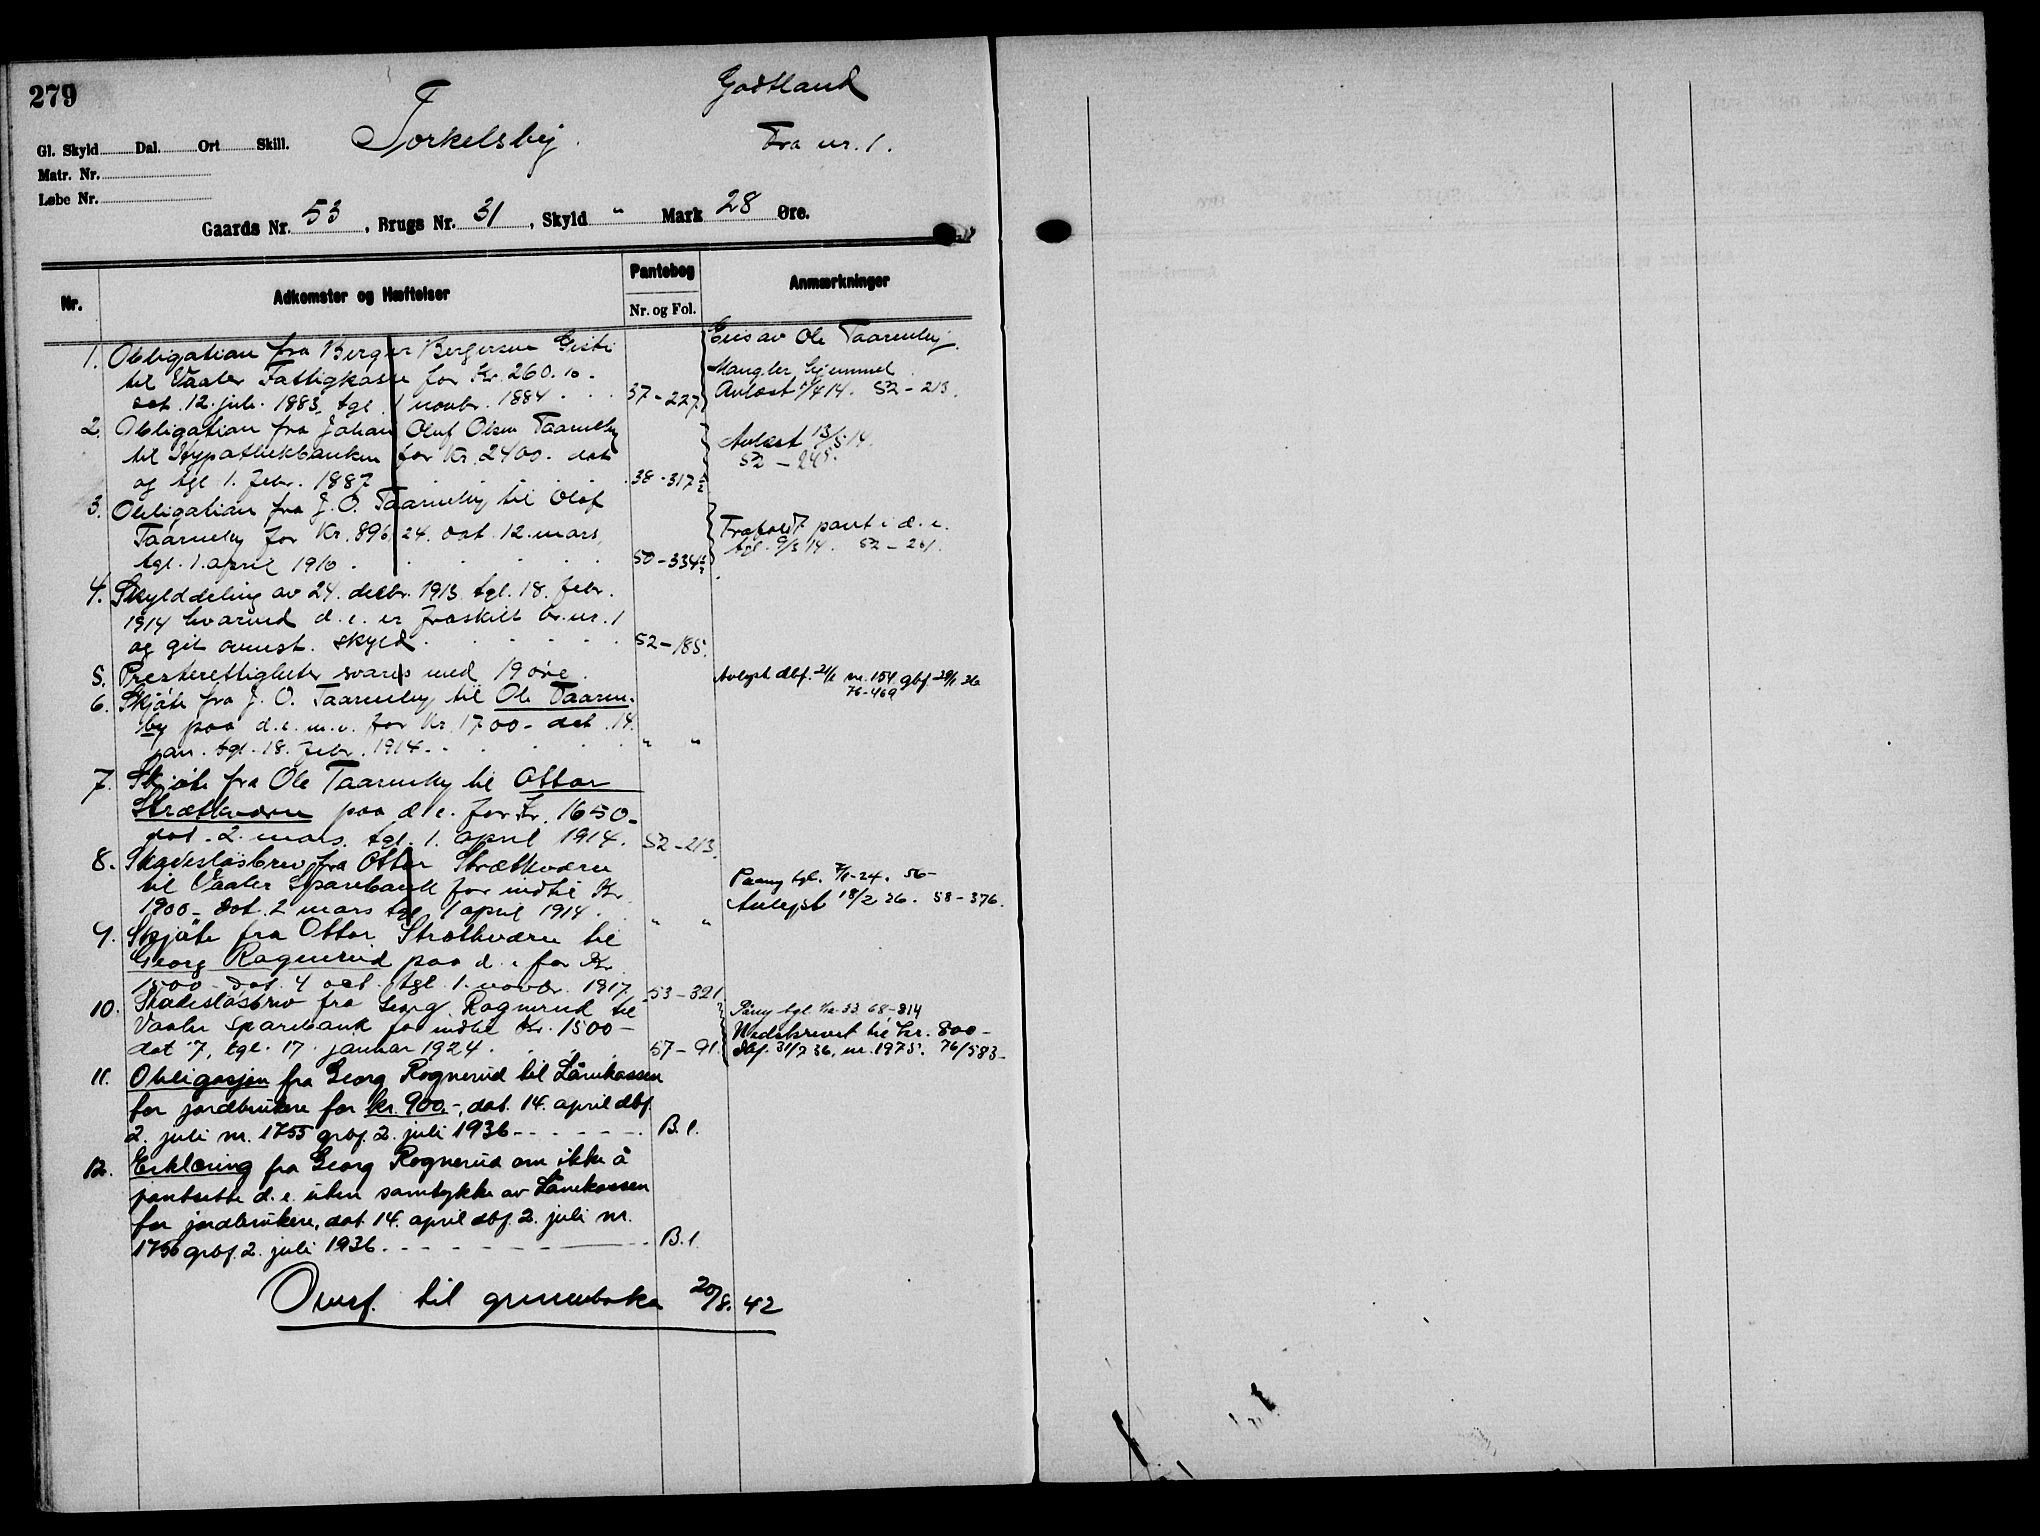 279
Torkelsby.
Godtland
Fra nr. 1.
Gl. Skyld Dal. Ort Skill.
Matr. Nr.
Løbe Nr.
Gaards Nr. 53, Brugs Nr. 31, Skyld " Mark 28 Øre.
Nr.
Adkomster og Hæftelser
Pantebog
Nr. og Fol.
Anmærkninger
1. Obligation fra Berger Bergersen
til Vaaler Fattigkasse for Kr. 260.10.
dat. 12. juli 1883, tgl. 1 novbr. 1884 . . . 37-227
Eies av Ole Taarneby.
Mangler hjemmel
Avlæst 1/4 14. 52-213.
2. Obligation fra Johan Oluf Olsen Taarneby
til Hypothekbanken for Kr. 2400. dat
og tgl 1. febr. 1887 . . . 38-317½
Avlæst 13/5 14.
52-245.
3. Obligation fra J. O. Taarneby til Olof
Taarneby for Kr. 896,24. dat. 12. mars,
tgl. 1. april 1910 . . . 50-334½
Frafaldt pant i d. e.
tgl. 9/5 14. 52-241.
4. Skylddeling av 24. decbr. 1913 tgl. 18. febr.
1914 hvorved d. e. er fraskilt br. nr. 1
og git ovenst. skyld . . . 52-185.
5. Presterettigheter svares med 19 øre.
Avlyst dbf. 21/1 nr. 154 gbf 29/1 36
76-469
6. Skjøte fra J. O. Taarneby til Ole Taarne-
by paa d. e. m. v. for Kr. 1700- dat. 14.
jan. tgl. 18. febr. 1914 . . . " "
7. Skjøte fra Ole Taarneby til Ottar
Strætkværn paa d. e. for Kr. 1650-
dat. 2. mars. tgl. 1. april 1914. 52-213.
8. Skadesløsbrev fra Ottar Strætkværn
til Vaaler Sparebank for indtil Kr.
1900- dat. 2 mars tgl 1 april 1914. " "
Paany tgl. 7/1-24. 56-
Avlyst 18/2 26. 58-376.
9. Skjøte fra Ottar Strætkværn til
Georg Rognerud paa d. e. for Kr
1500- dat. 4 oct. tgl. 1. novbr. 1917 53-321
10. Skadesløsbrev fra Georg Rognerud til
Vaaler Sparebank for indtil Kr. 1500-
dat 7, tgl. 17. januar 1924. . . 57-91.
Påny tgl. 33. 68-814
Nedskrevet til kr. 800-
dbf. 31/7 36, nr. 1975. 76/583-
11. Obligasjon fra Georg Rognerud til Lånekassen
for jordbrukere for kr. 900,-, dat. 14. april dbf.
2. juli nr. 1755 grbf. 2. juli 1936 - - - B. 1.
12. Erklæring fra Georg Rognerud om ikke å
pantsette d. e. uten samtykke av Lånekassen
for jordbrukere, dat. 14. april dbf. 2. juli nr.
1756 grbf. 2. juli 1936. - - - B. 1.
Overf. til grunnboka 20/8. 42